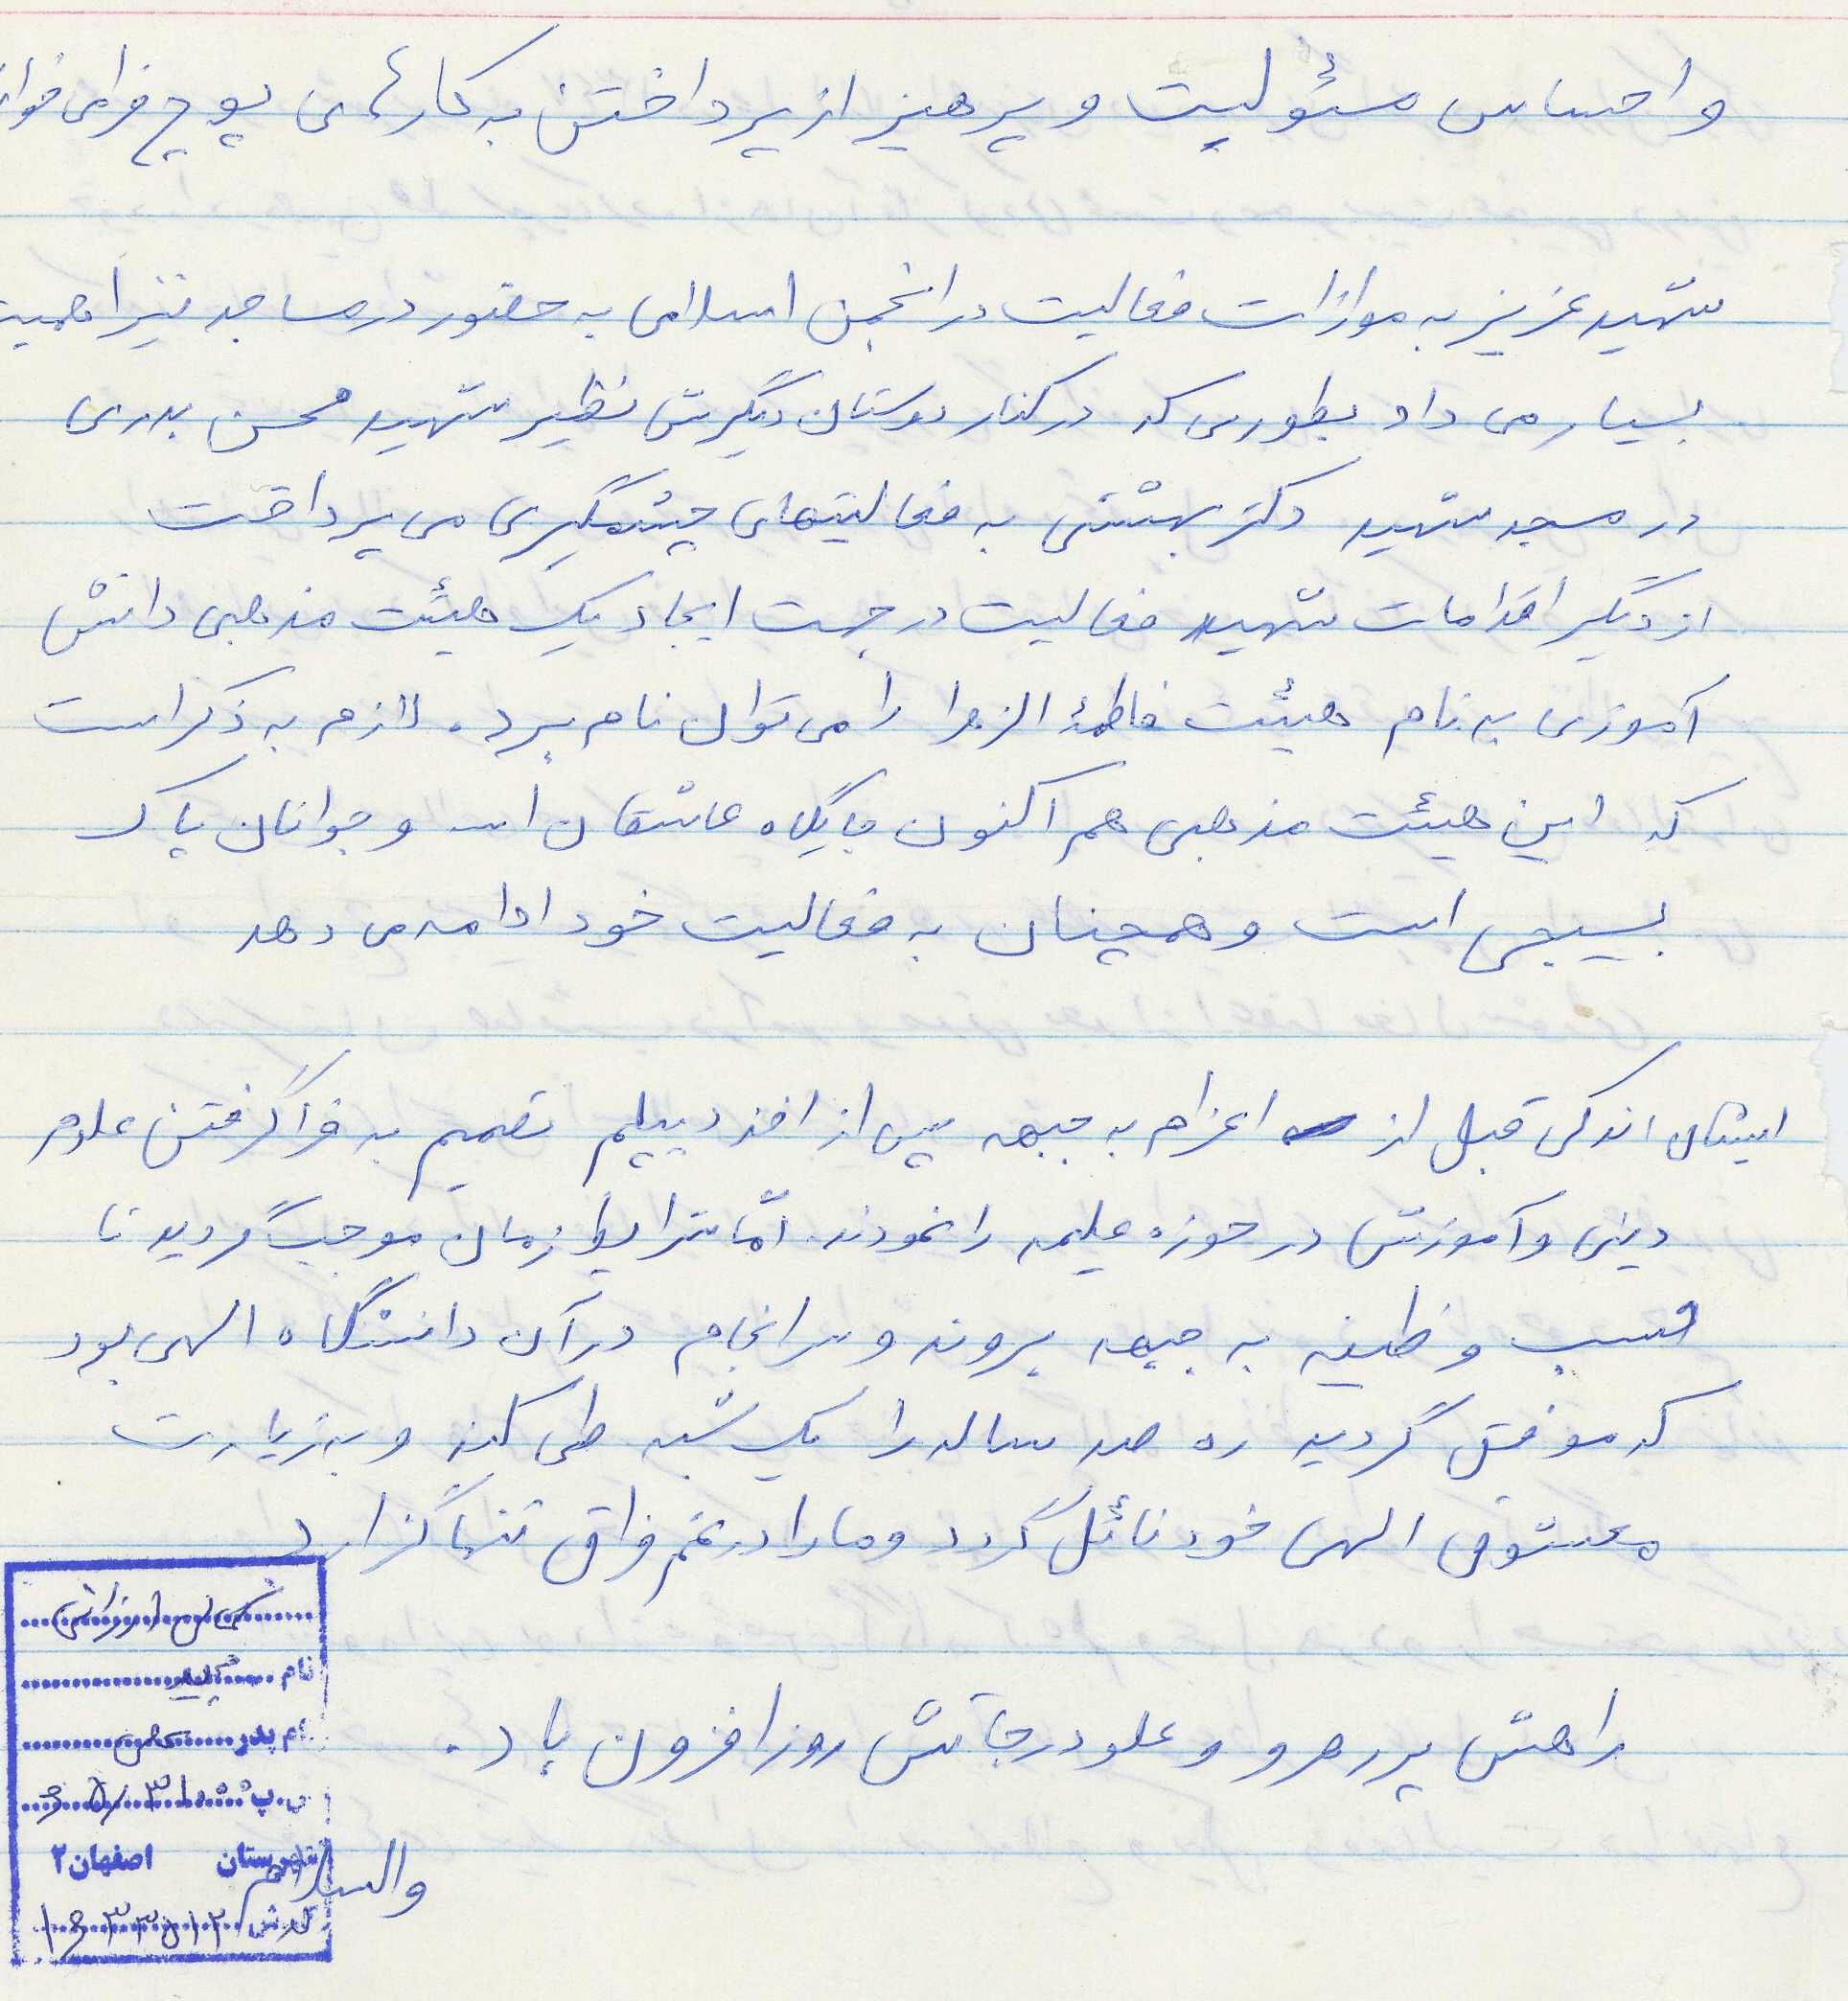 و احساس مسئولیت و پرهیز از پرداختن به کارهای پوچ فرامی خواند
شهید عزیز به موازات فعالیت در انجمن اسلامی به حضور در مساجد نیز اهمیت
بسیار می داد بطوری که در کنار دوستان دیگرش نظیر شهید محسن بدری
در مسجد شهید دکتر بهشتی به فعالیتهای چشمگیری می پرداخت
از دیگر اقدامات شهید فعالیت در جهت ایجاد یک هیئت مذهبی دانش
آموزی به نام هیئت فاطمهٔ الزهرا را می توان نام برد. لازم به ذکر است
که این هیئت مذهبی هم اکنون جایگاه عاشقان الله و جوانان پاک
بسیجی است و همچنان به فعالیت خود ادامه می دهد
ایشان اندکی قبل از اعزام به جبهه پس از اخذ دیپلم تصمیم به فراگرفتن علوم
دینی و آموزش در حوزه علیمه را نمودند. امّا شرایط زمان موجب گردید تا
حسب وظیفه به جبهه بروند و سرانجام در آن دانشگاه الهی بود
که موفق گردید ره صد ساله را یک شبه طی کند و به زیارت
معشوق الهی خود نائل گردد و ما را در غم فراق تنها گذارد
راهش پر رهرو و علو درجاتش روز افزون باد.
والسلام
نام
نام پدر
ش.پ
شهرستان اصفهان۲
کد ش ۱۶۳۳۵۱۲